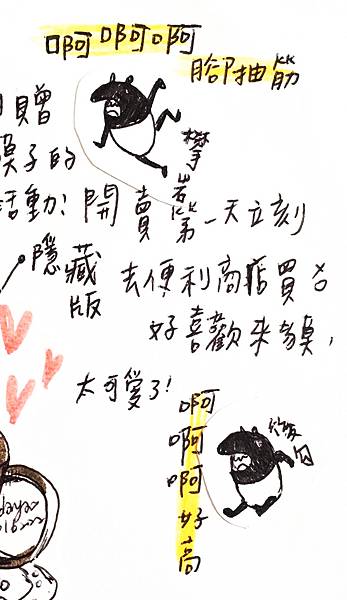 啊啊啊
腳抽筋
贈
子的
活動:開賣第一天立刻
隱藏版
去便利商店買
好喜歡來貘,
太可愛了!
啊啊啊好高